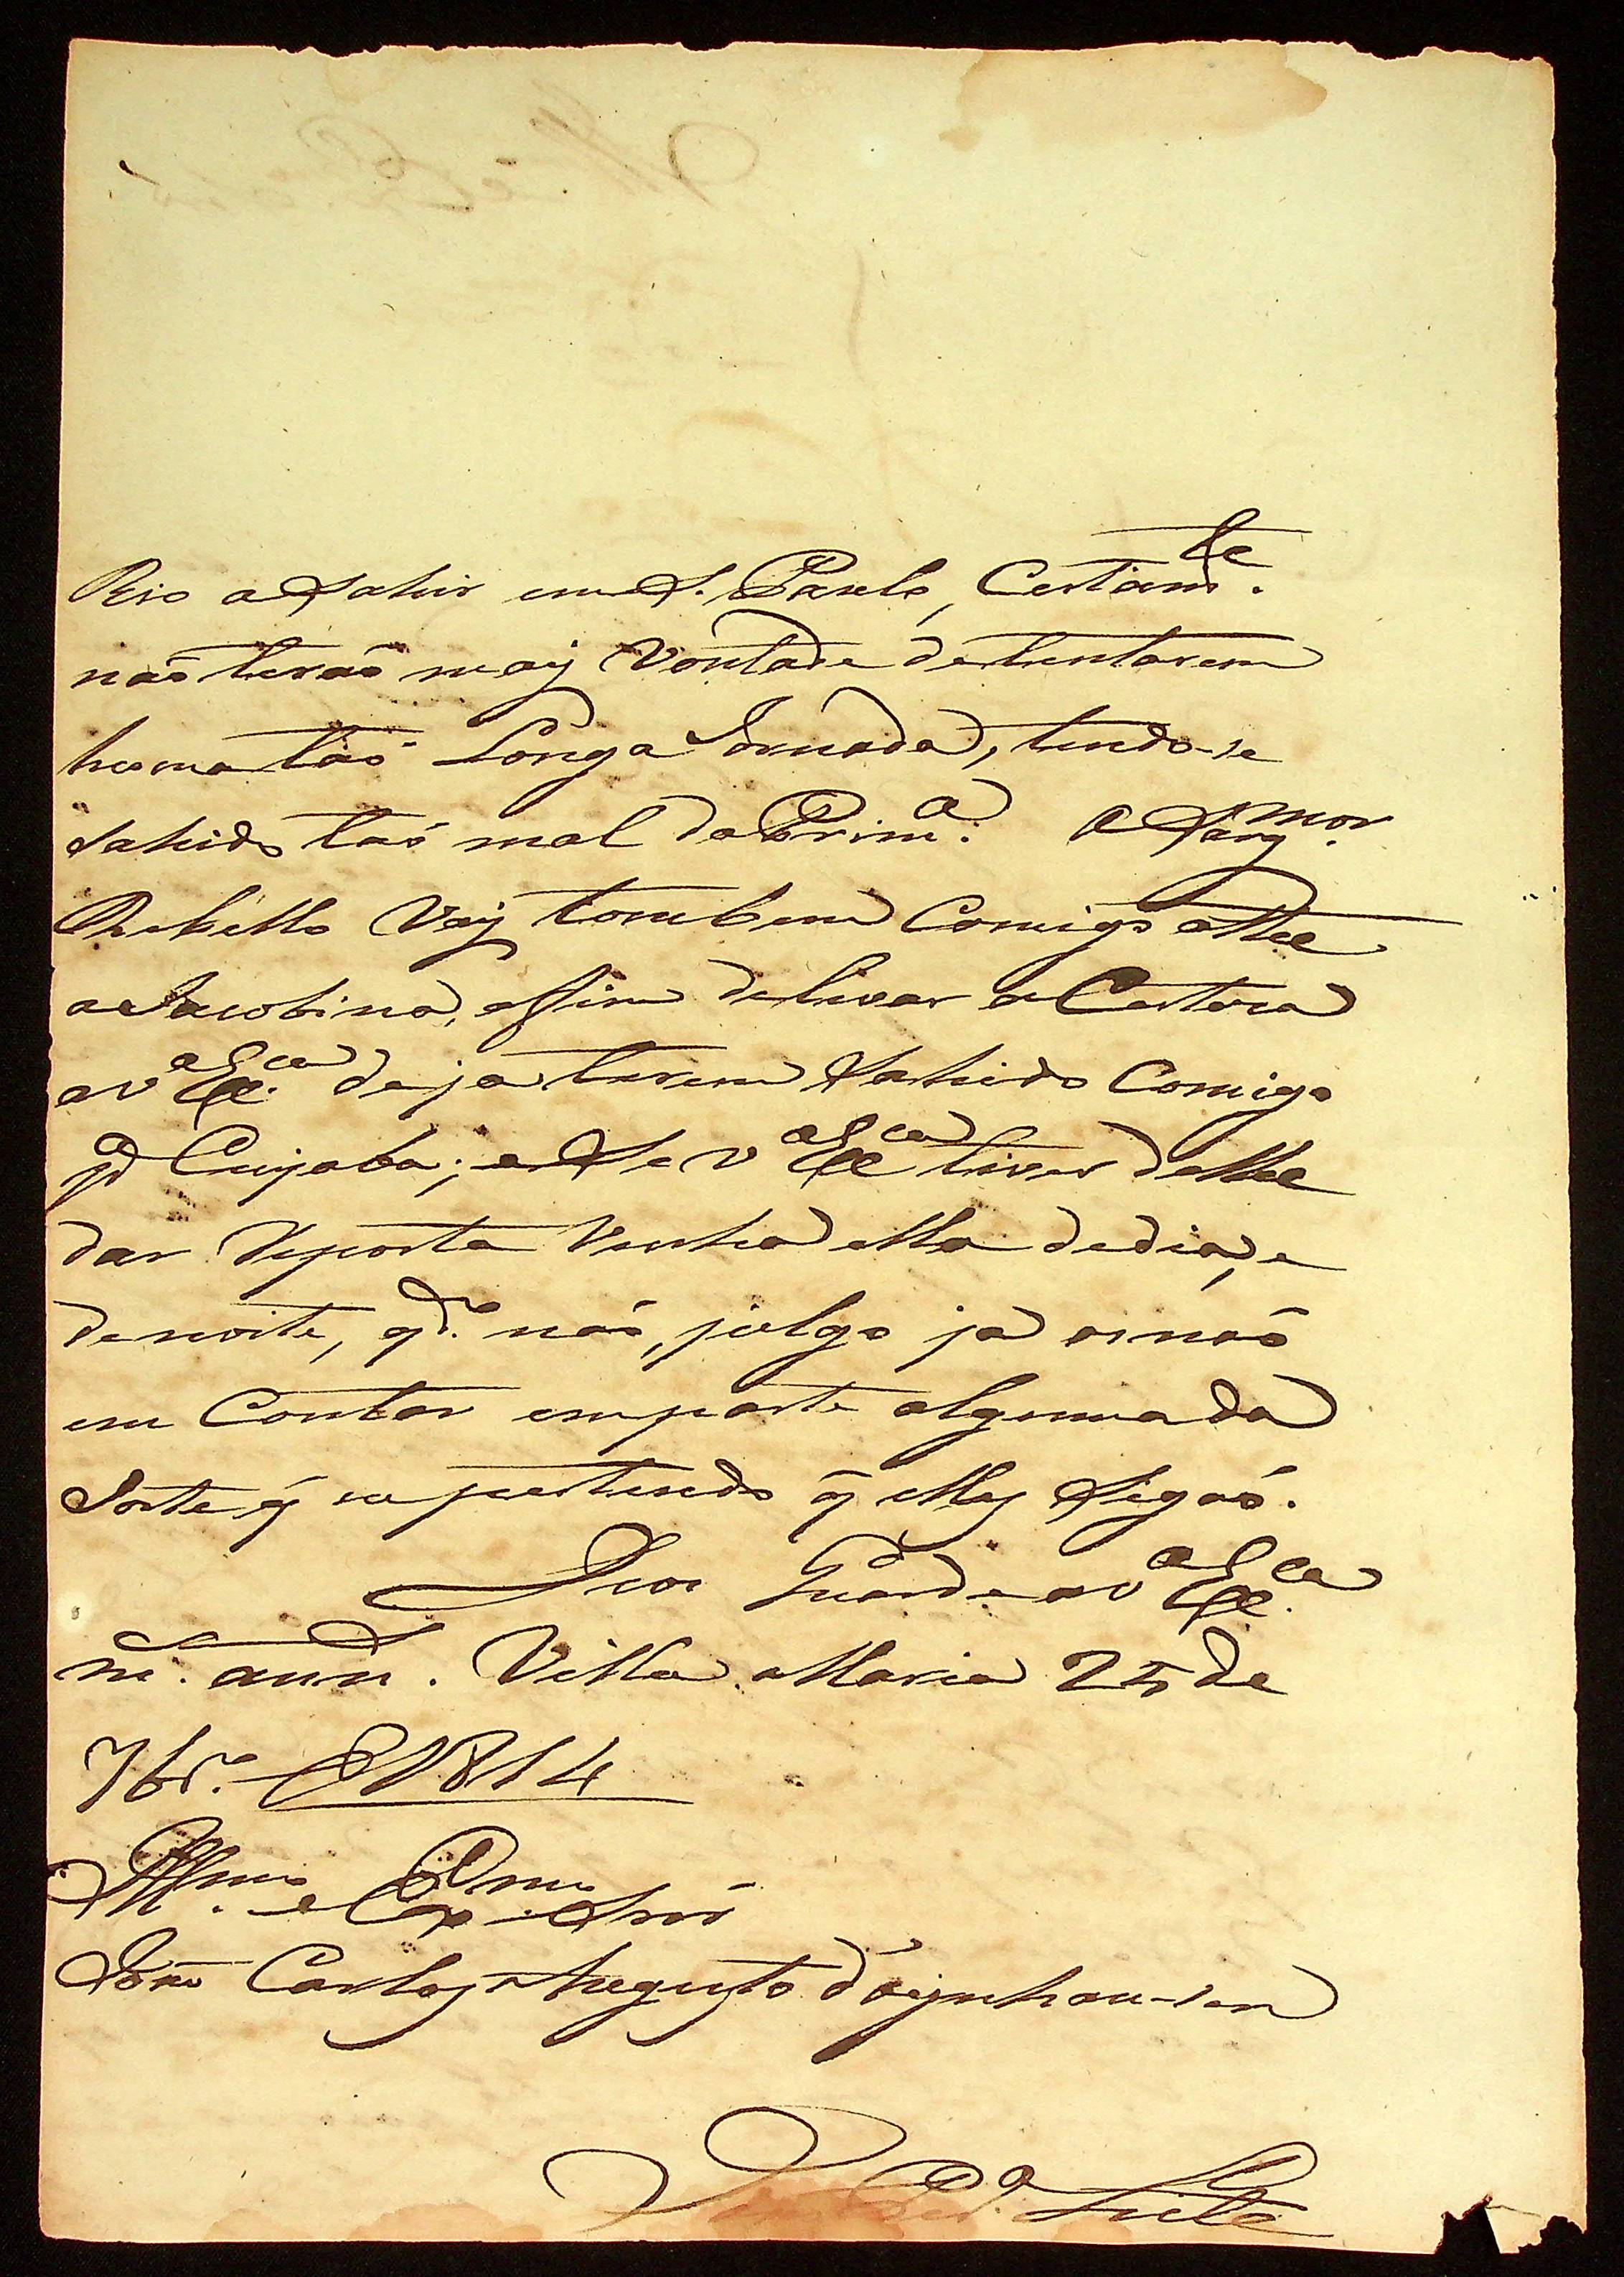 Rio a Sahir em S. Paulo, Certam.te
não terão maiz Vontade de tentarem
huma tão Longa Jornada, tendo-se
sahido tão mal da Prim.a. O Sarg.mor
Rebello Vaj tombem Comigo athe
a Jacobina, afim de levar a Certeza
a V.a Ex.ca de ja terem Sahido Comigo
p.a Cuyaba; e Se V.a Ex.ca tiver de lhe
dar Reposta Venha ella de dia, e
de noite, q.do não, julgo ja os não
em Contar em parte alguma da
Sorte q̃ eu pertendo q̃ elles Sigão.
Deos Guarde a V.a Ex.ca
m.s ann.s. Villa Maria 25 de
7br.o d 1814
Ill.mo e Ex.mo Snr
João Carlos Augusto d'Oeynhausen
Leite